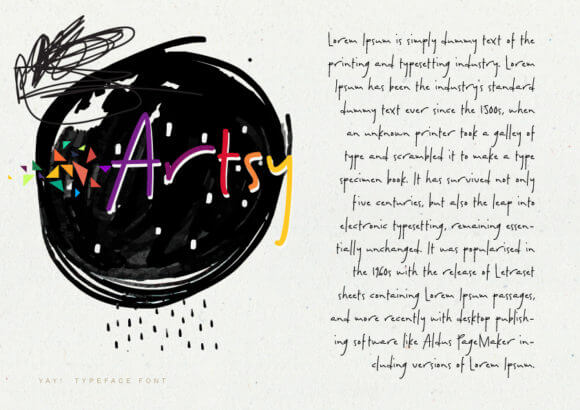 Artsy
YAY! TYPEFACE FONT
Lorem Ipsum is simply dummy text of the
printing and typesetting industry. Lorem
Ipsum has been the industry's standard
dummy text ever since the 1500s, when
an unknown printer took a galley of
type and scrambled it to make a type
specimen book. It has survived not only
five centuries, but also the leap into
electronic typesetting, remaining essen-
tially unchanged. It was popularised in
the 1960s with the release of Letraset
sheets containing Lorem Ipsum passages,
and more recently with desktop publish-
ing software like Aldus PageMaker in-
cluding versions of Lorem Ipsum.